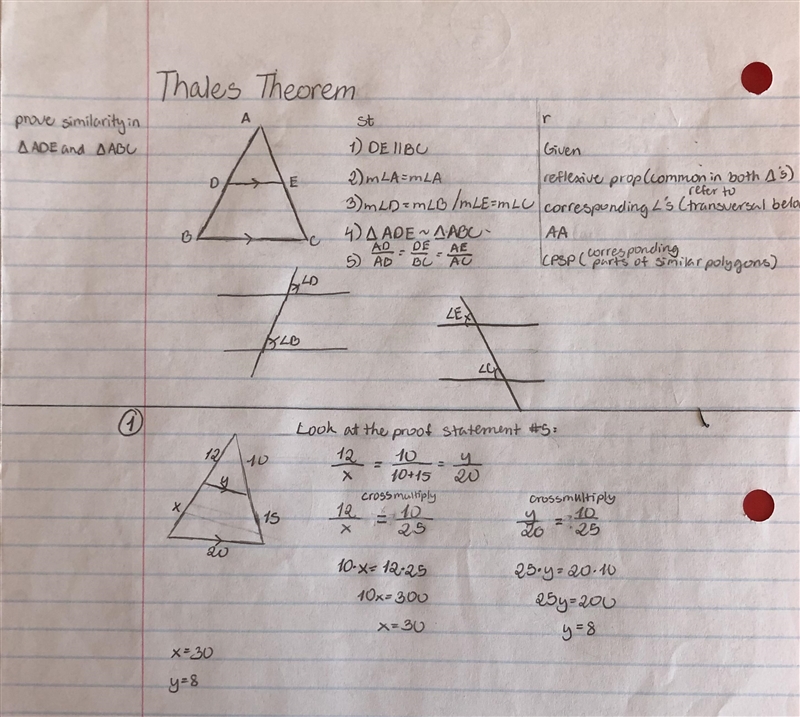 Thales Theorem
prove similarity in
△ADE and △ABC
A
D
E
B
C
st
r
1) DE||BC
Given
2) m∠A=m∠A
reflexive prop (common in both △'s)
3) m∠D=m∠B / m∠E=m∠C
corresponding ∠'s (refer to transversal below
4) △ADE ~ △ABC
AA
5) AD/AB = DE/BC = AE/AC
CPSP (corresponding parts of similar polygons)
∠D
∠B
∠E
∠C
1
Look at the proof statement #5:
12
10
y
x
15
20
12/x = 10/10+15 = y/20
crossmultiply
12/x = 10/25
10·x=12·25
10x=300
x=30
crossmultiply
y/20 = 10/25
25·y=20·10
25y=200
y=8
x=30
y=8